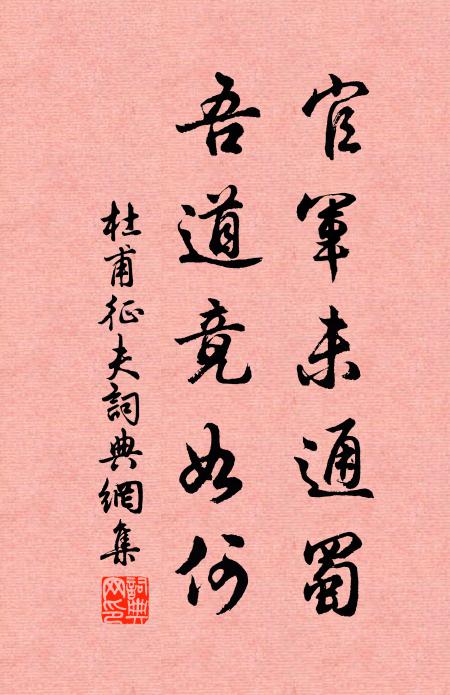 官軍未通蜀
吾道竟如何
杜甫征夫詞典網集
詞典網印